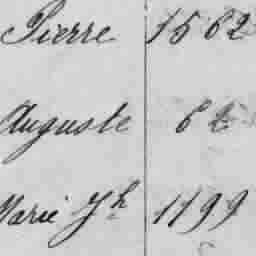 Pierre 1562
Auguste 62
Marie Jh 1199